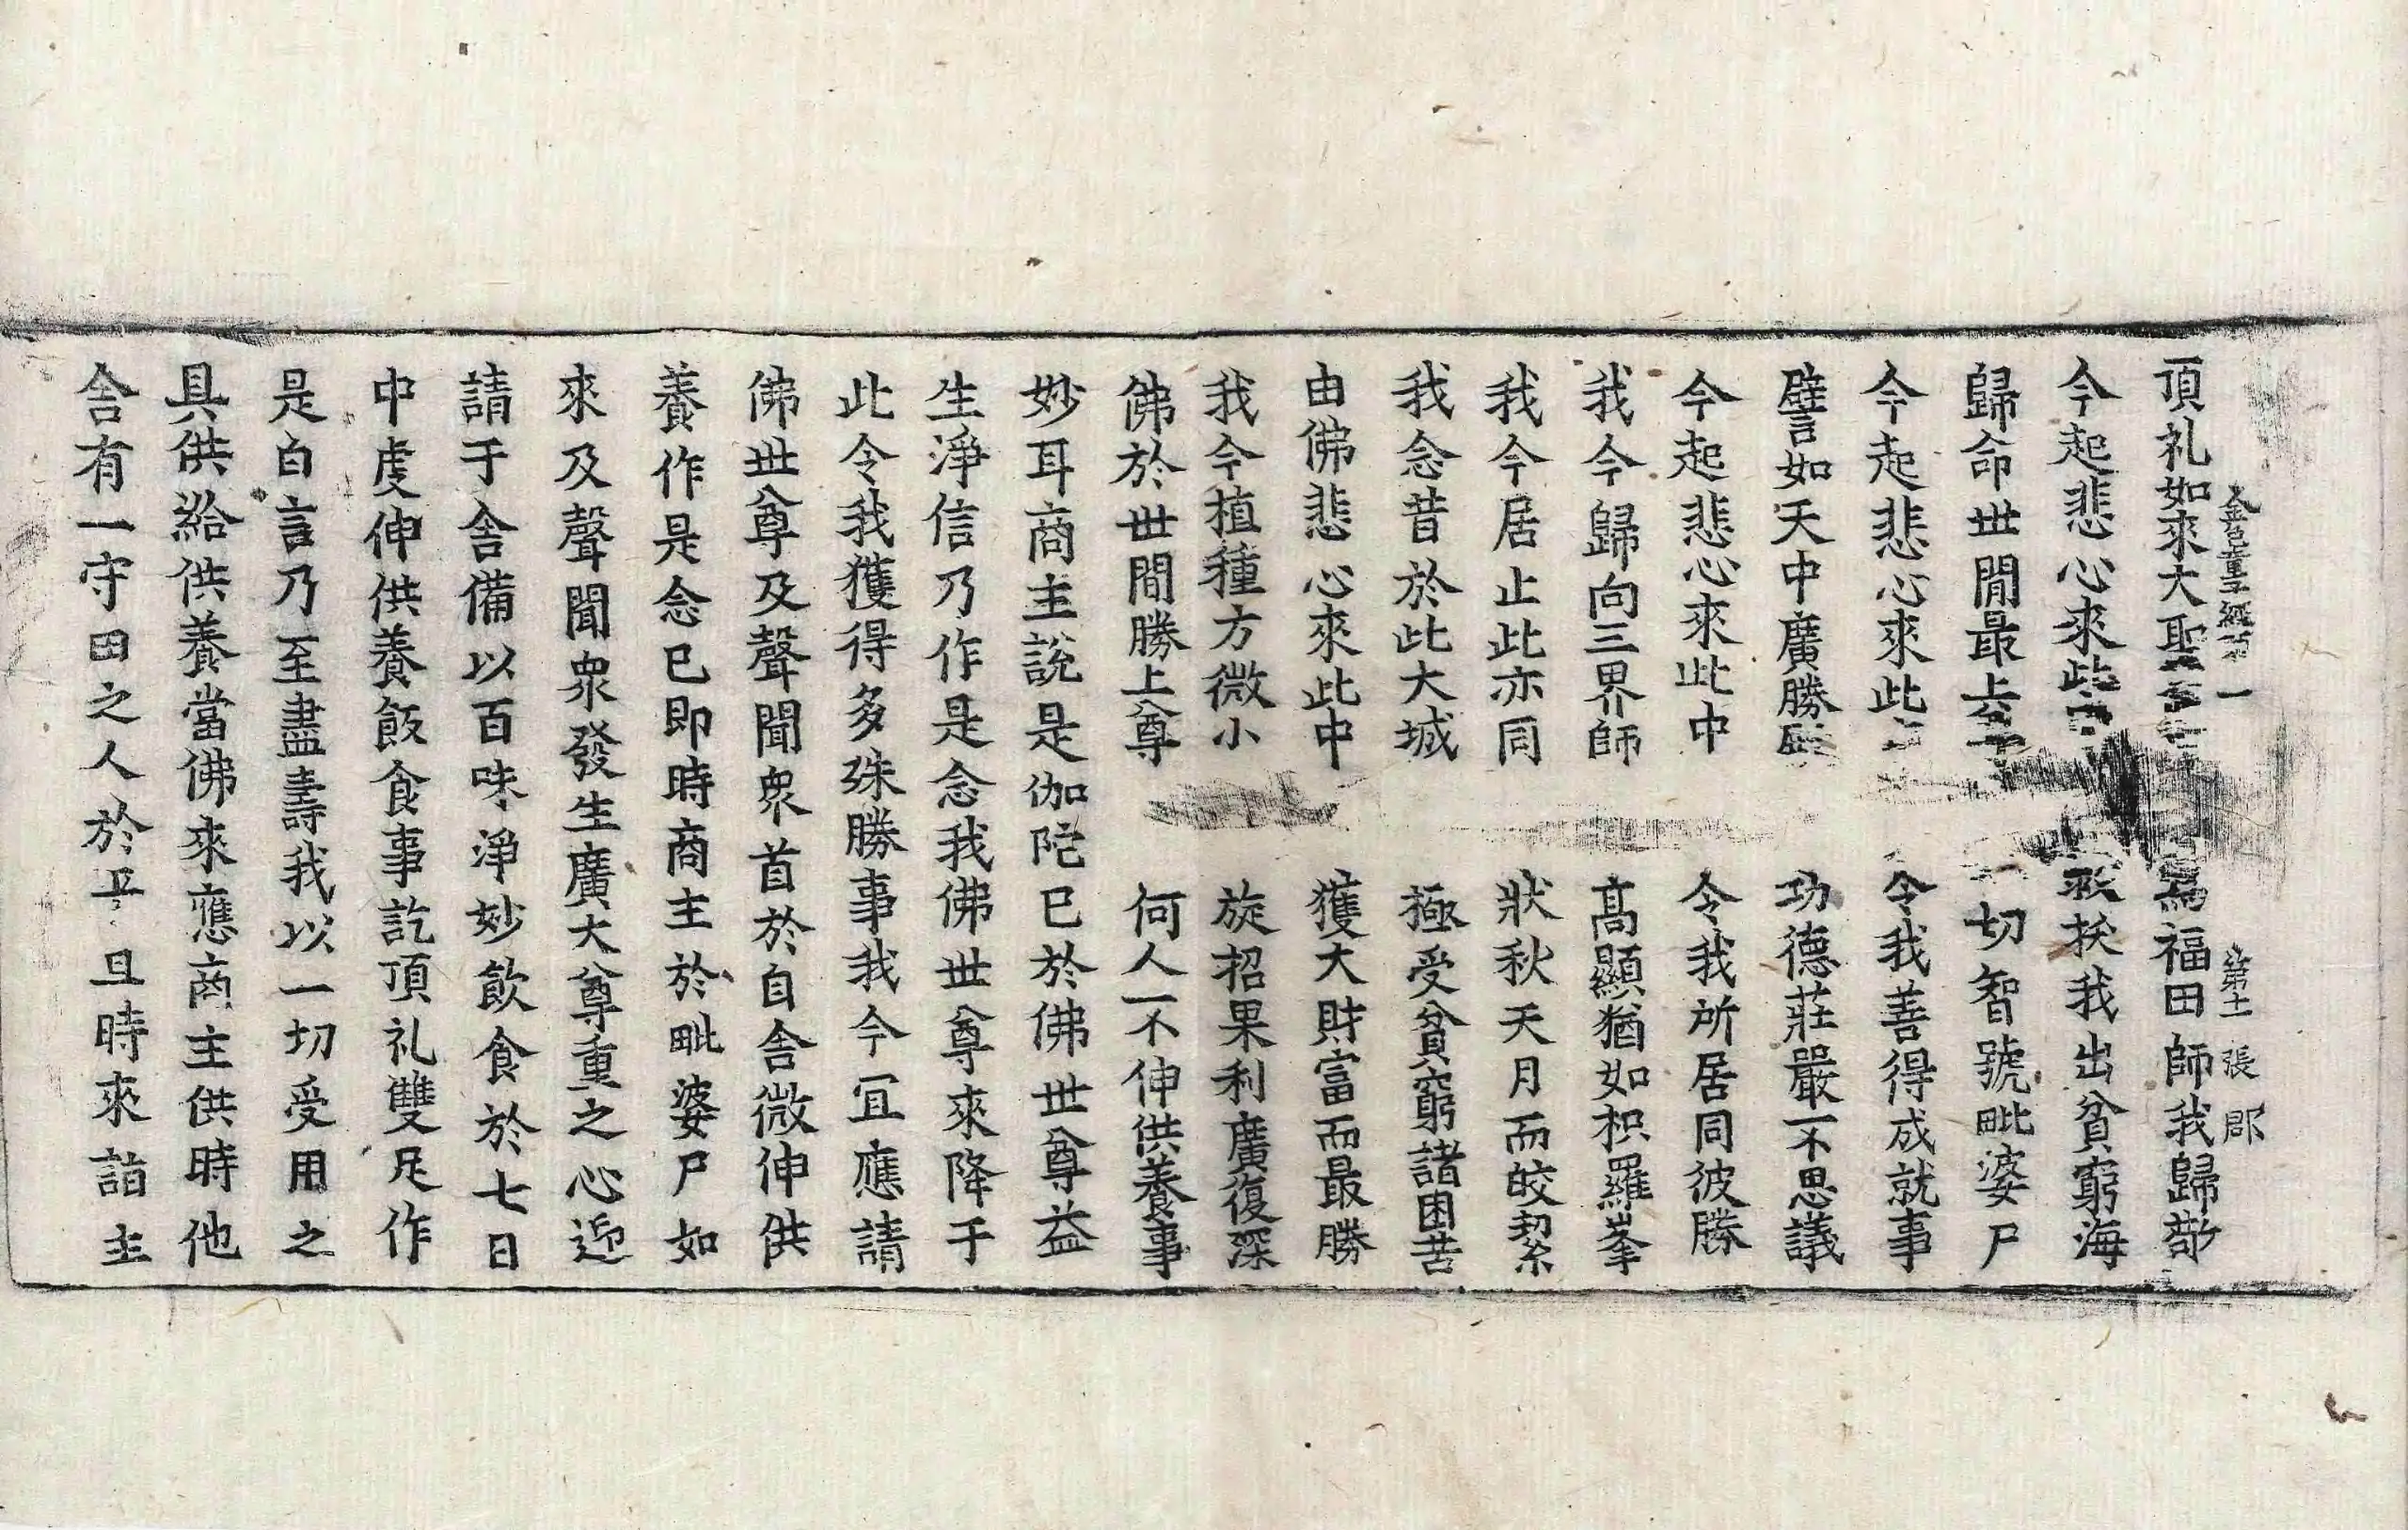 金色童子經第一 第十一張 郡
頂礼如來大聖 為福田師我歸敬
今起悲心來此 救拔我出貧窮海
歸命世間最上 一切智號毗婆尸
今起悲心來此 令我善得成就事
譬如天中廣勝 功德莊嚴不思議
今起悲心來此中 令我所居同彼勝
我今歸向三界師 高顯猶如枳羅峯
我今居止此亦同 狀秋天月而皎絜
我念昔於此大城 極受貧窮諸困苦
由佛悲心來此中 獲大財富而最勝
我今植種方微小 旋招果利廣復深
佛於世間勝上尊 何人不伸供養事
妙耳商主說是伽陀已於佛世尊益
生淨信乃作是念我佛世尊來降于
此令我獲得多殊勝事我今冝應請
佛世尊及聲聞衆首於自舍微伸供
養作是念已即時商主於毗婆尸如
來及聲聞衆發生廣大尊重之心迎
請于舍備以百味淨妙飲食於七日
中虔伸供養飯食事訖頂礼雙足作
是白言乃至盡壽我以一切受用之
具供給供養當佛來應商主供時他
舍有一守田之人於平旦時來詣主